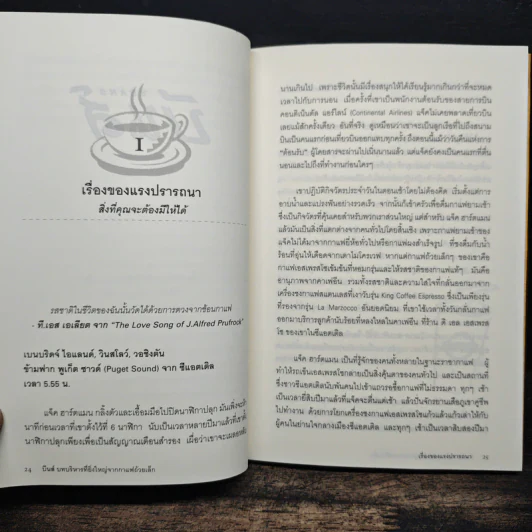 I
เรื่องของแรงปรารถนา
สิ่งที่คุณจะต้องมีให้ได้
รสชาติในชีวิตของฉันนั้นวัดได้ด้วยการตวงจากช้อนกาแฟ
- ที.เอส เอเลียต จาก "The Love Song of J.Alfred Prufrock"
เบนบริดจ์ ไอแลนด์, วินสโลว์, วอชิงตัน
ข้ามฟาก พูเก็ต ซาวด์ (Puget Sound) จาก ซีแอตเติล
เวลา 5.55 น.
แจ็ค ฮาร์ตแมน กลิ้งตัวและเอื้อมมือไปปิดนาฬิกาปลุก มันเพิ่งจะ
นาทีก่อนเวลาที่เขาตั้งไว้ที่ 6 นาฬิกา นับเป็นเวลาหลายปีมาแล้วที่
นาฬิกาปลุกเพียงเพื่อเป็นสัญญาณเตือนสำรอง เผื่อว่าเขาจะเผลอ
24 บีนส์ บทบริหารที่ยิ่งใหญ่จากกาแฟถ้วยเล็ก
นานเกินไป เพราะชีวิตนั้นมีเรื่องสนุกให้ได้เรียนรู้มากเกินกว่าที่จะหมด
เวลาไปกับการนอน เมื่อครั้งที่เขาเป็นพนักงานต้อนรับของสายการบิน
คอนติเน็ตัล แอร์ไลน์ (Continental Airlines) แจ็คไม่เคยพลาดเที่ยวบิน
เลยแม้สักครั้งเดียว อันที่จริง ดูเหมือนว่าเขาจะเป็นลูกเรือที่ไปถึงสนาม
บินเป็นคนแรกก่อนเที่ยวบินออกแทบทุกครั้ง ถึงตอนนี้แม้ว่าวันคืนแห่งการ
"ต้อนรับ" ผู้โดยสารจะผ่านไปเนิ่นนานแล้ว แต่แจ็คยังคงเป็นคนแรกที่ตื่น
นอนและไปถึงที่ทำงานก่อนใครๆ
เขาปฏิบัติกิจวัตรประจำวันในตอนเช้าโดยไม่ต้องคิด เริ่มตั้งแต่การ
อาบน้ำและแปรงฟันอย่างรวดเร็ว จากนั้นก็เข้าครัวเพื่อดื่มกาแฟยามเช้า
ซึ่งเป็นกิจวัตรที่คุ้นเคยสำหรับพวกเราส่วนใหญ่ แต่สำหรับ แจ็ค ฮาร์ตแมน
แล้วมันเป็นสิ่งที่แตกต่างจากคนทั่วไปโดยสิ้นเชิง เพราะกาแฟยามเช้าของ
แจ็คไม่ได้มาจากกาแฟยี่ห้อทั่วไปหรือกาแฟผงสำเร็จรูป ที่ชงดื่มกับน้ำ
ร้อนที่อุ่นให้เดือดจากเตาไมโครเวฟ หากแต่กาแฟถ้วยเล็กๆ ของเขาคือ
กาแฟเอสเพรสโซเข้มข้นที่หอมกรุ่นและให้รสชาติของกาแฟแท้ๆ มันคือ
อานุภาพจากคาเฟอีน รวมทั้งรสชาติและความใส่ใจที่กลั่นออกมาจาก
เครื่องชงกาแฟสแตนเลสที่เงาวับรุ่น King Coffee Espresso ซึ่งเป็นเพียงรุ่น
ที่รองจากรุ่น La Marzocco อันยอดนิยม ที่เขาใช้เวลาทั้งวันกลั่นกาแฟ
ออกมาบริการลูกค้านับร้อยที่หลงใหลในคาเฟอีน ที่ร้าน ดิ เอล เอสเพรส
โซ ของเขาในซีแอตเติล
แจ็ค ฮาร์ตแมน เป็นที่รู้จักของคนทั้งหลายในฐานะราชากาแฟ ผู้
ทำให้รถเข็นเอสเพรสโซกลายเป็นสิ่งคุ้นตาของคนทั่วไป และเป็นสถานที่
ซึ่งชาวซีแอตเติลนับพันคนไปเข้าแถวรอซื้อกาแฟที่ไม่ธรรมดา ทุกๆ เช้า
เป็นเวลายี่สิบปีมาแล้วที่แจ็คจะตื่นแต่เช้า แล้วปั่นจักรยานเสือภูเขาคู่ชีพ
ไปทำงาน ด้วยการโยกเครื่องชงกาแฟเอสเพรสโซแก้วแล้วแก้วเล่าให้กับ
ผู้คนในย่านใจกลางเมืองซีแอตเติล และทุกๆ เช้าเป็นเวลาสิบสองปีมา
เรื่องของแรงปรารถนา 25